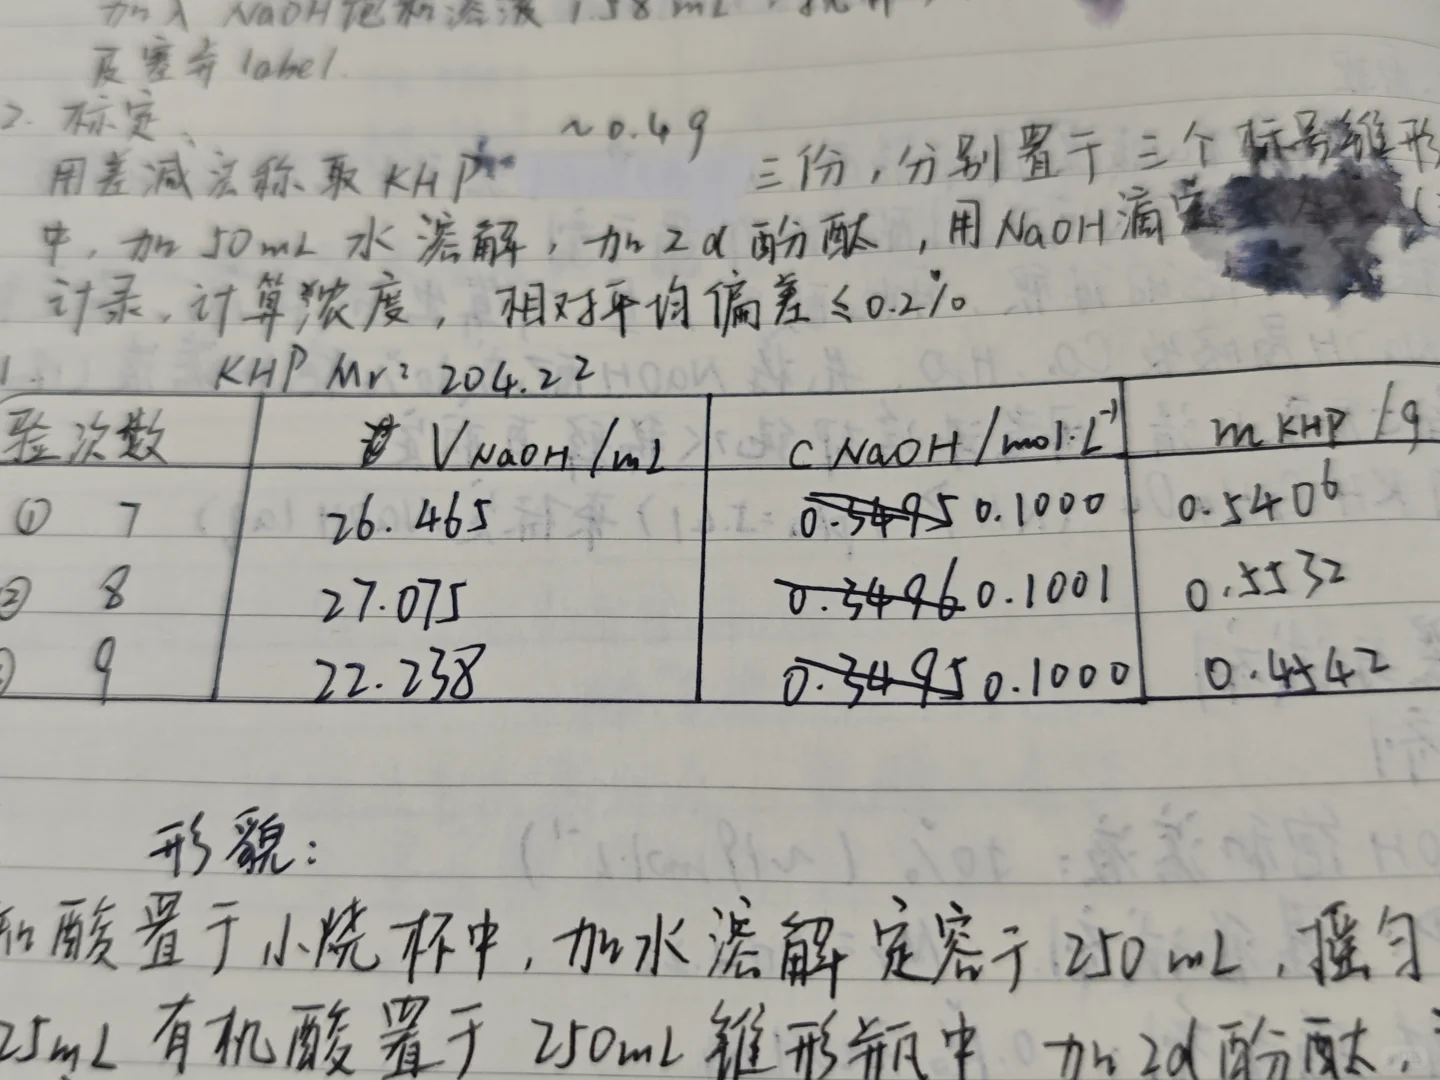 加入 NaOH饱和溶液 1.58 mL
及塞并 label.
2. 标定
~0.4g
用差减法称取 KHP 三份，分别置于三个标号锥形
中，加50mL 水溶解，加2d酚酞，用NaOH滴定
计录，计算浓度，相对平均偏差≤0.2%
KHP Mr: 204.22
验次数 V NaOH /mL C NaOH /mol·L⁻¹ m KHP /g
① 7 26.465 0.3495 0.1000 0.5406
② 8 27.075 0.3496 0.1001 0.5532
9 22.238 0.3495 0.1000 0.4542
形貌：
酸置于小烧杯中，加水溶解 定容于 250 mL，摇匀
25mL 有机酸置于 250mL 锥形瓶中 加2d酚酞，